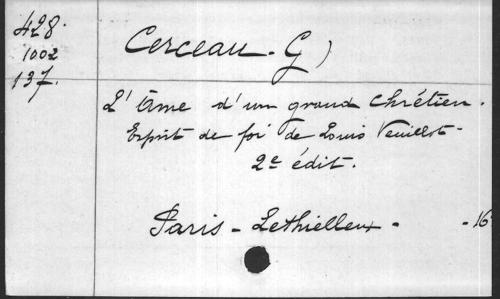 428.
1002
137.
Cerceau. G)
L'âme d'un grand Chrétien.
Esprit de foi de Louis Veuillot.
2e édit.
Paris - Lethielleux - - 16